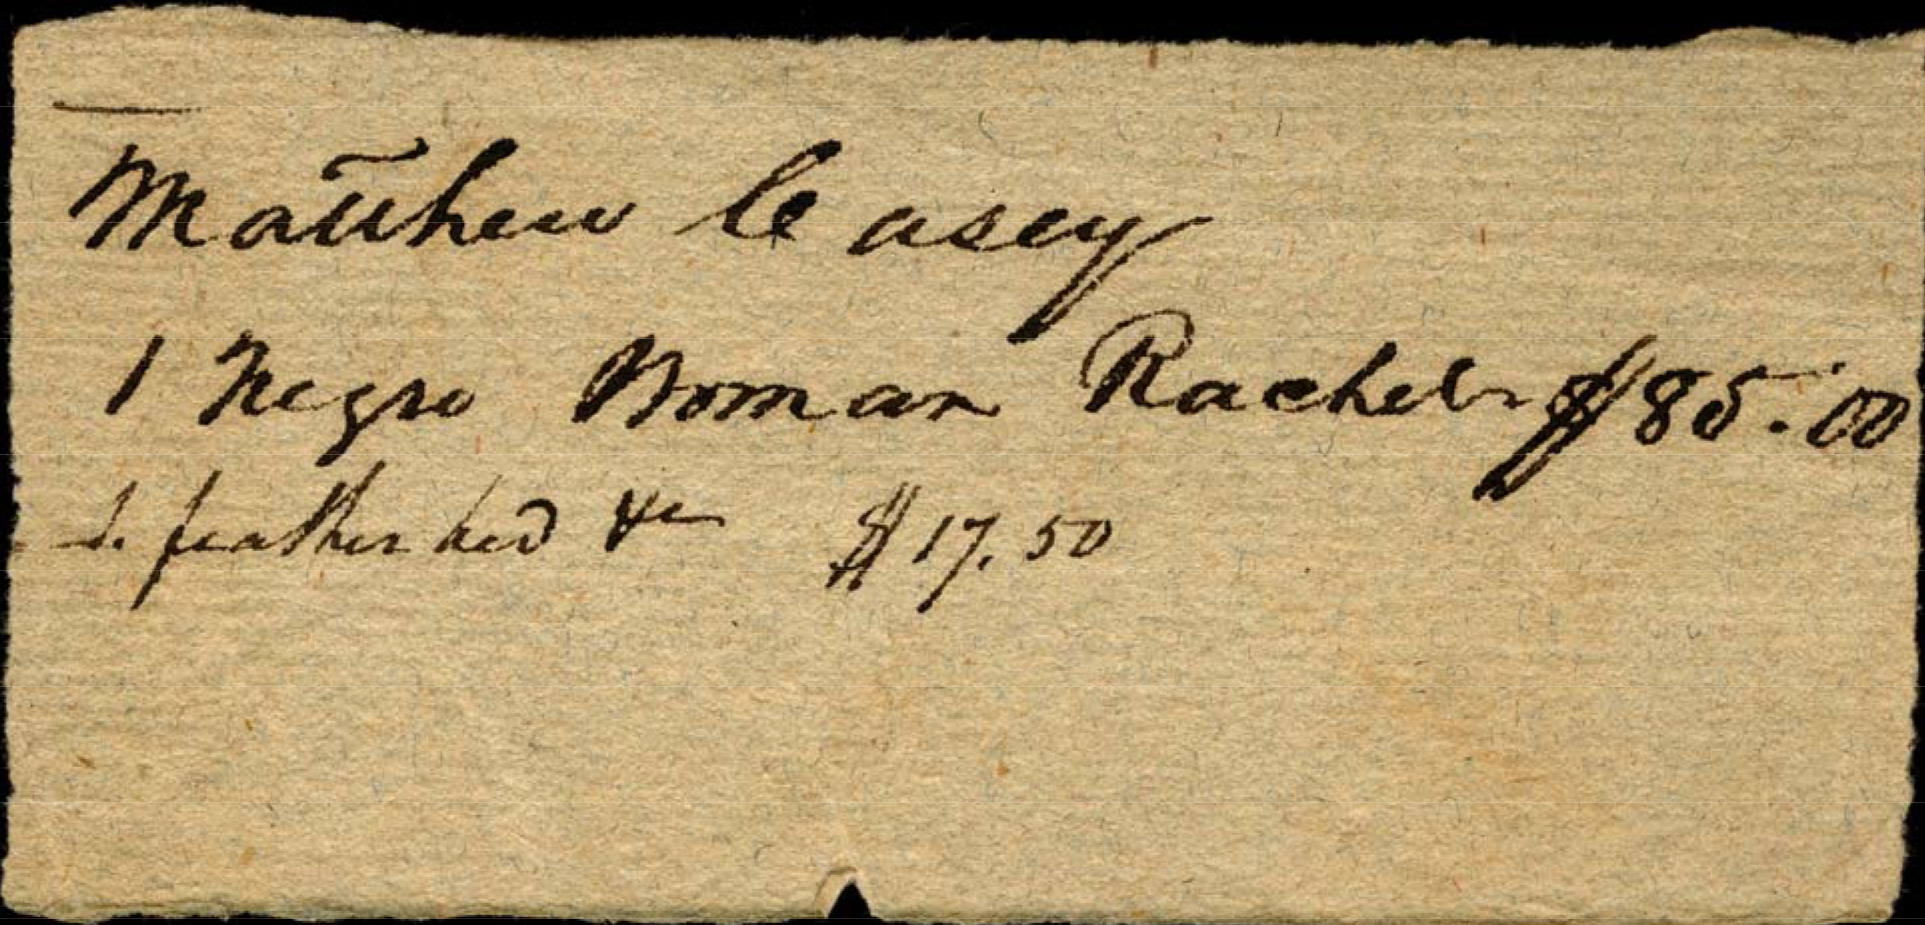 Matthew Casey
1 Negro Woman Rachel $85.00
1. feather bed &c $17.50